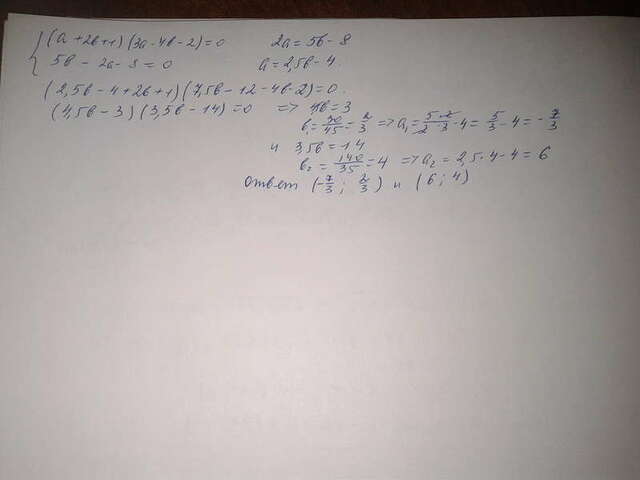 { (a + 2b + 1)(3a - 4b - 2) = 0 2a = 5b - 8
5b - 2a - 8 = 0 a = 2,5b - 4
(2,5b - 4 + 2b + 1)(7,5b - 12 - 4b - 2) = 0
(4,5b - 3)(3,5b - 14) = 0 => 4b = 3
b₁ = 30/45 = 2/3 => a₁ = 5·2/2·3 - 4 = 5/3 - 4 = -7/3
и 3,5b = 14
b₂ = 140/35 = 4 => a₂ = 2,5·4 - 4 = 6
Ответ (-7/3; 2/3) и (6; 4)